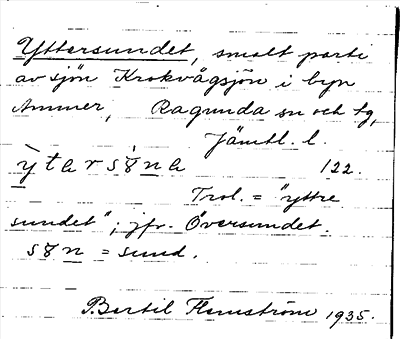 Yttersundet, smalt parti
av sjön Krokvågsjön i byn
Ammer, Ragunda sn och tg,
Jämtl. l.
ỳtarsꞛ̀na 122.
Trol. = "yttre
sundet"; jfr. Översundet.
sꞛn = sund.
Bertil Flemström 1935.